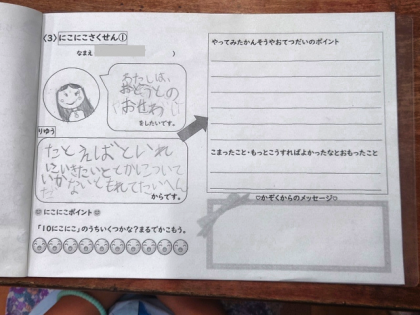 〈3〉にこにこさくせん①
なまえ )
あたしは、
おとうとの
おせわ
をしたいです。
りゆう
たとえばといれ
にいきたいととかについて
いかないともれてたいへん
だ
からです。
にこにこポイント
「10にこにこ」のうちいくつかな?まるでかこもう。
やってみたかんそうやおてつだいのポイント
こまったこと・もっとこうすればよかったなとおもったこと
♡かぞくからのメッセージ♡